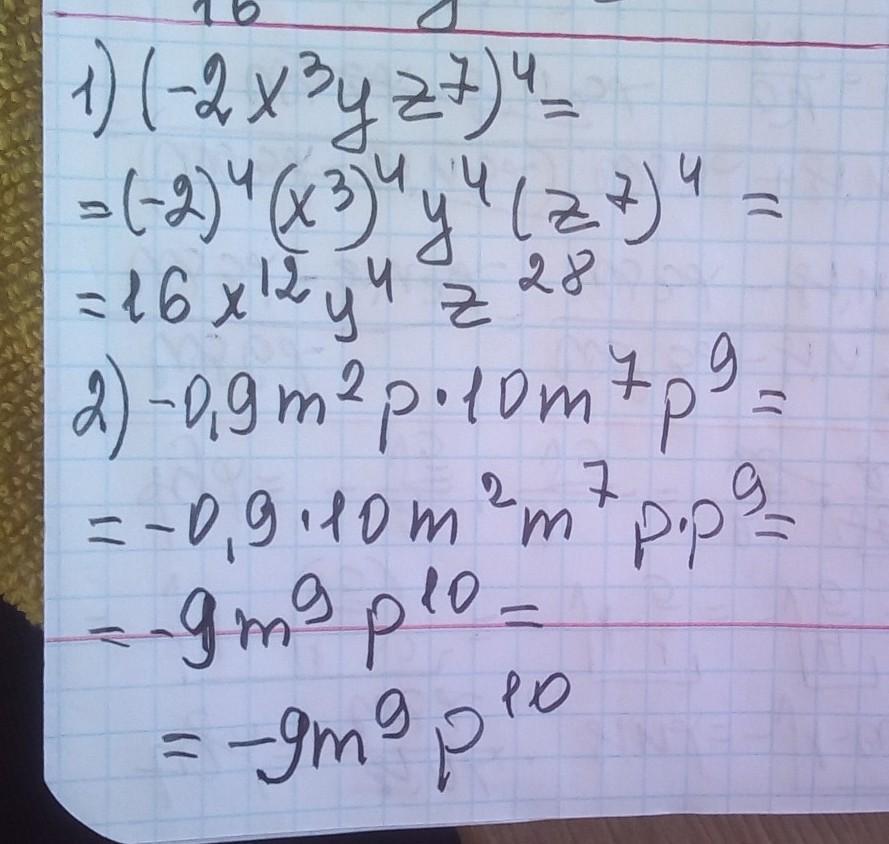 16 y
1) (-2x³yz⁷)⁴=
=(-2)⁴(x³)⁴y⁴(z⁷)⁴ =
=16x¹²y⁴ z²⁸
2) -0,9m²p·10m⁷p⁹=
=-0,9·10m²m⁷p·p⁹=
=-9m⁹p¹⁰=
=-9m⁹p¹⁰